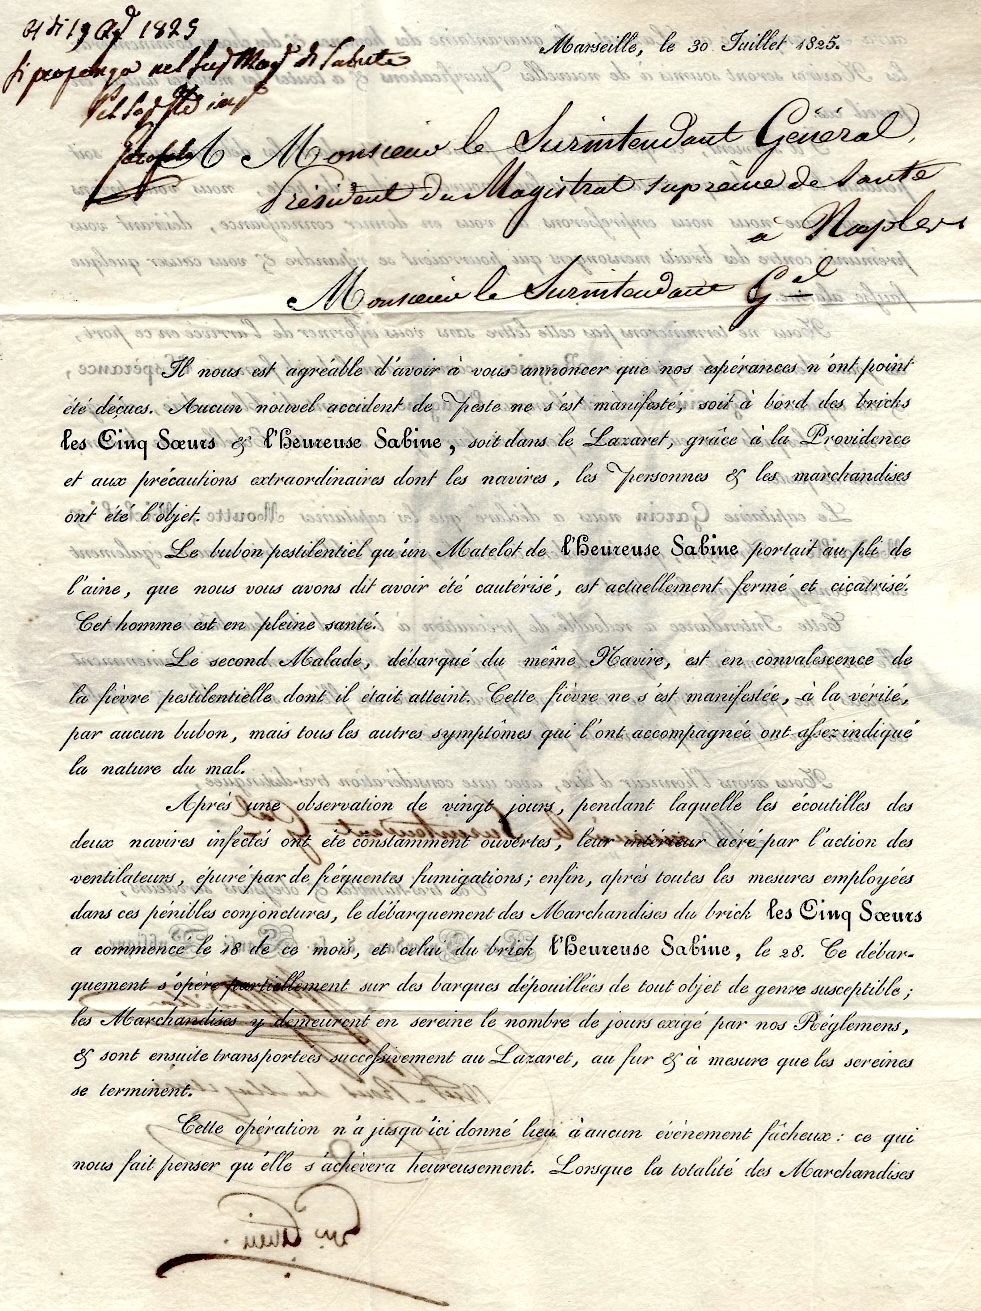 1825
Si proponga nel Sup Mag di Salute
Marseille, le 30 Juillet 1825.
A Monsieur le Surintendant Général,
Président du Magistrat suprême de Santé
à Naples
Monsieur le Surintendant Gal
Il nous est agréable d'avoir à vous annoncer que nos espérances n'ont point
été déçues. Aucun nouvel accident de Peste ne s'est manifesté, soit à bord des bricks
les Cinq Sœurs & l'Heureuse Sabine, soit dans le Lazaret, grâce à la Providence
et aux précautions extraordinaires dont les navires, les Personnes & les marchandises
ont été l'objet.
Le bubon pestilentiel qu'un Matelot de l'Heureuse Sabine portait au pli de
l'aine, que nous vous avons dit avoir été cautérisé, est actuellement fermé et cicatrisé.
Cet homme est en pleine santé.
Le second Malade, débarqué du même Navire, est en convalescence de
la fièvre pestilentielle dont il était atteint. Cette fièvre ne s'est manifestée, à la vérité,
par aucun bubon, mais tous les autres symptômes qui l'ont accompagnée ont assez indiqué
la nature du mal.
Après une observation de vingt jours, pendant laquelle les écoutilles des
deux navires infectés ont été constamment ouvertes, leur intérieur aéré par l'action des
ventilateurs, épuré par de fréquentes fumigations; enfin, après toutes les mesures employées
dans ces pénibles conjonctures, le débarquement des Marchandises du brick les Cinq Sœurs
a commencé le 18 de ce mois, et celui du brick l'Heureuse Sabine, le 28. Ce débar-
quement s'opère partiellement sur des barques dépouillées de tout objet de genre susceptible;
les Marchandises y demeurent en sereine le nombre de jours exigé par nos Réglemens,
& sont ensuite transportées successivement au Lazaret, au fur & à mesure que les sereines
se terminent.
Cette opération n'a jusqu'ici donné lieu à aucun événement fâcheux: ce qui
nous fait penser qu'elle s'achèvera heureusement. Lorsque la totalité des Marchandises